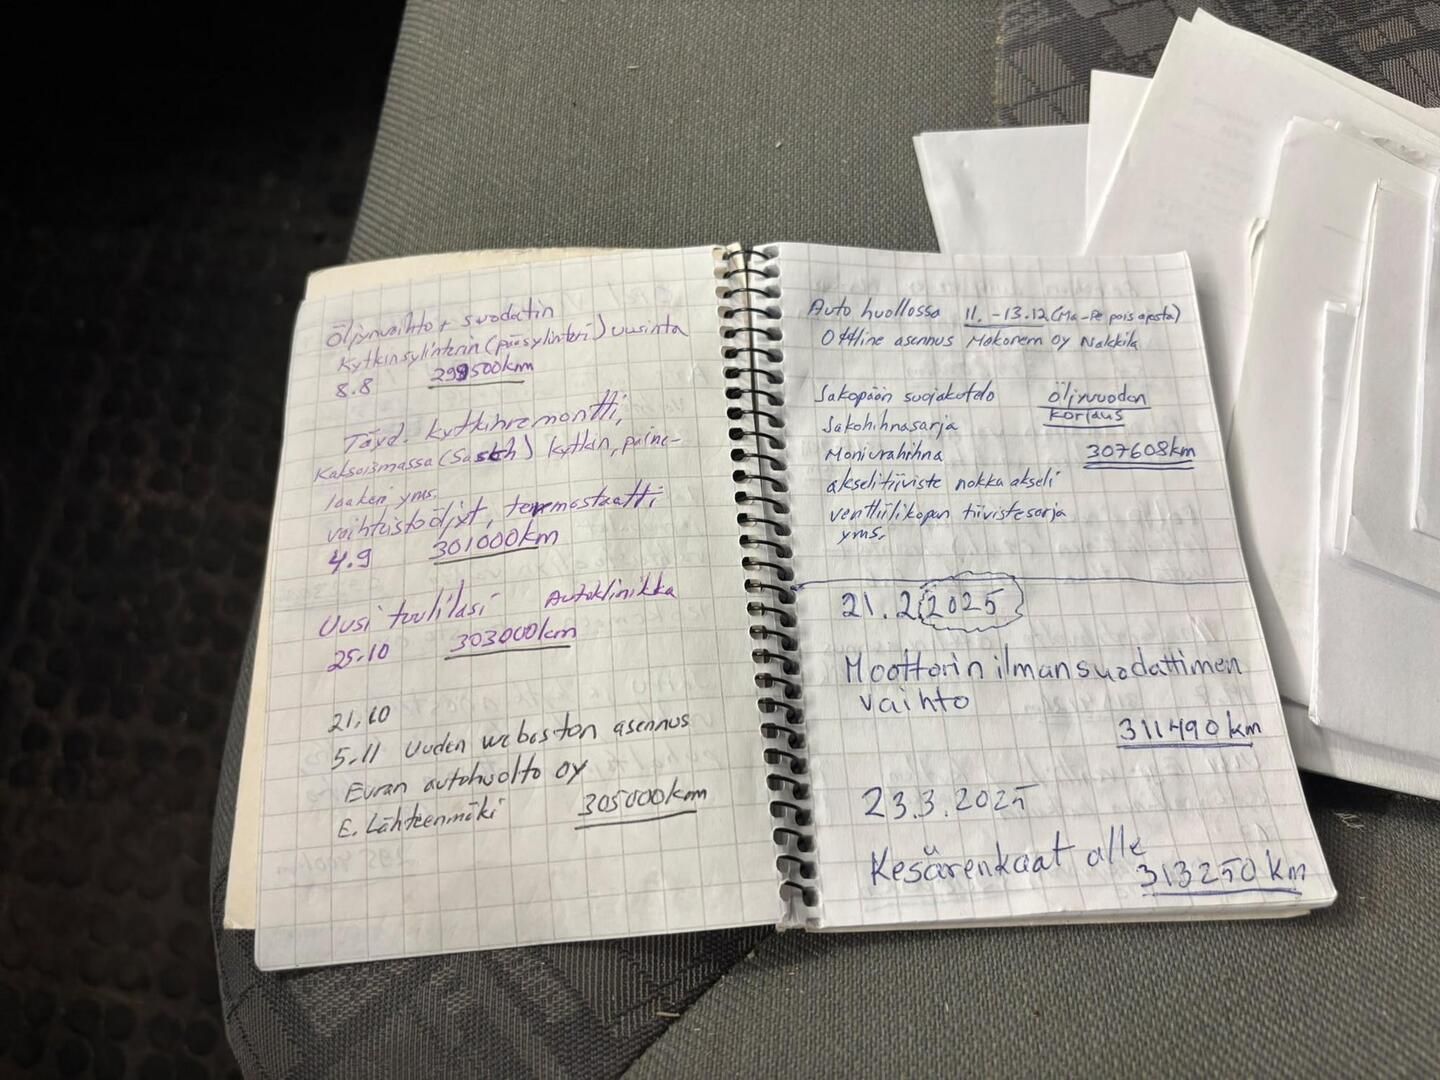 Öljynvaihto + suodatin
Kytkinsylinterin (pääsylinteri) uusinta
8.8 299500km
Täyd. kytkinremontti,
Kaksoismassa (Sachs) kytkin, paine-
laakeri yms.
vaihteistoöljyt, termostaatti
4.9 301000km
Uusi tuulilasi Autoklinikka
25.10 303000km
21.10
5.11 Uuden webaston asennus
Euran autohuolto oy
E. Lähteenmäki 305000km
Auto huollossa 11.-13.12 (Ma-Pe pois ajosta)
asennus Mokorem oy Nakkila
Jakopään suojakotelo öljyvuodon
korjaus
Jakohihnasarja
Moniurahihna 307608km
akselitiiviste nokka akseli
venttiilikopan tiivistesarja
yms.
21.2 2025
Moottorin ilmansuodattimen
vaihto
311490 km
23.3.2025
Kesärenkaat alle
313250 km